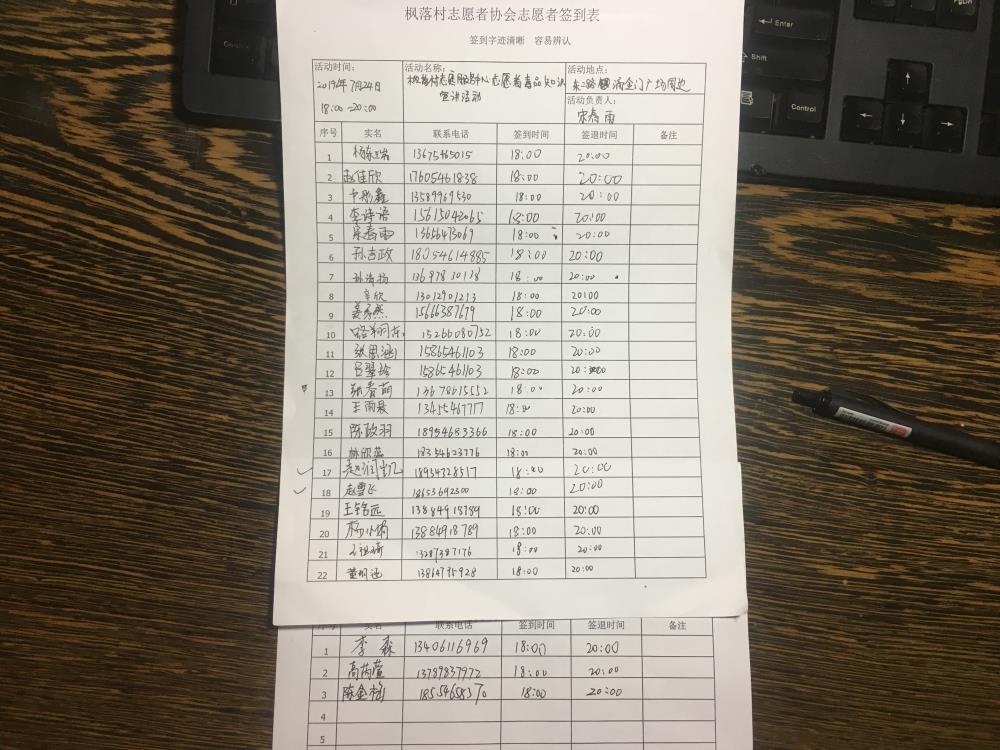 枫落村志愿者协会志愿者签到表
签到字迹清晰 容易辨认
活动时间: 活动名称: 活动地点:
2019年7月24日 枫落村志愿服务中心志愿者毒品知识 东二路 金门广场周边
18:00-20:00 宣讲活动 活动负责人:
宋春雨
序号 实名 联系电话 签到时间 签退时间 备注
1 13675465015 18:00 20:00
2 赵佳欣 17605461838 18:00 20:00
3 13589969530 18:00 20:00
4 李诗语 15615042065 18:00 20:00
5 宋春雨 13656473069 18:00 20:00
6 孙吉政 18054614885 18:00 20:00
7 孙涛扬 18:00 20:00
8 辛欣 13012901213 18:00 20:00
9 15666387679 18:00 20:00
10 15266080752 18:00 20:00
11 张恩涵 15865461103 18:00 20:00
12 吕翠玲 15865461103 18:00 20:00
13 张春苗 13678615552 18:00 20:00
14 王雨晨 13455467717 18:00 20:00
15 陈政羽 18954653366 18:00 20:00
16 18354623776 18:00 20:00
17 赵润凯 18954728517 18:00 20:00
18 赵雪飞 18653692500 18:00 20:00
19 王铭远 13884918789 18:00 20:00
20 杨小娟 13884918789 18:00 20:00
21 13287387176 18:00 20:00
22 13864795928 18:00 20:00
序号 实名 联系电话 签到时间 签退时间 备注
1 李森 13406116969 18:00 20:00
2 高芮萱 13789837972 18:00 20:00
3 陈金梅 18:00 20:00
4
5
Enter
Shift
Control